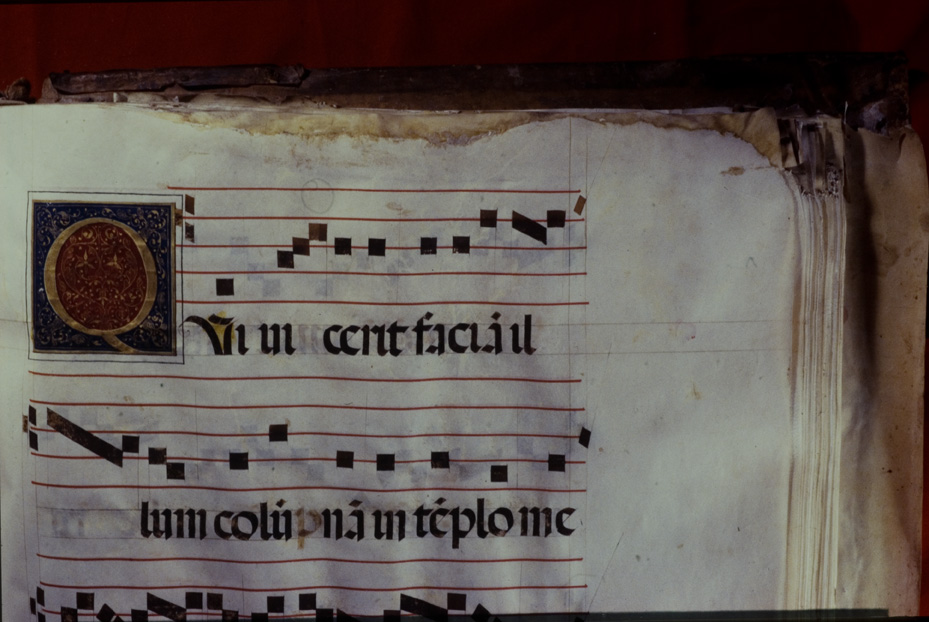 Qui ui cerit faciā il
lum colū nā in tēplo me